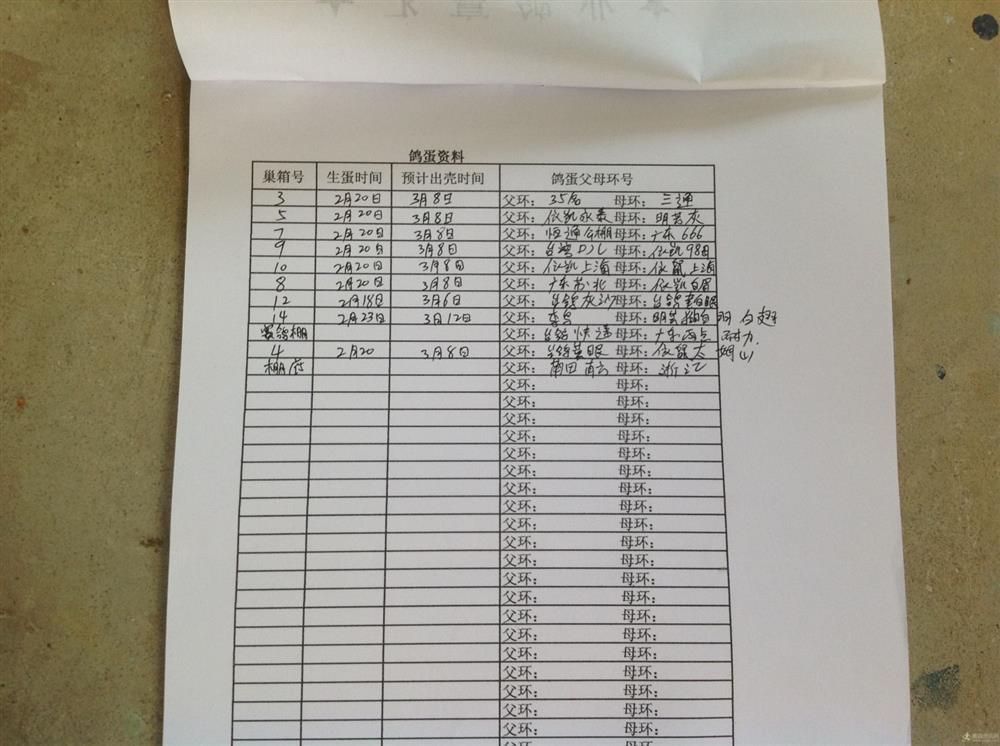 鸽蛋资料
巢箱号 生蛋时间 预计出壳时间 鸽蛋父母环号
3 2月20日 3月8日 父环: 35名 母环: 三通
5 2月20日 3月8日 父环: 依凯 母环: 明芸灰
7 2月20日 3月8日 父环: 恒通公棚 母环: 广东666
9 2月20日 3月8日 父环: 台湾 母环: 依凯98
10 2月20日 3月8日 父环: 依凯上海 母环: 依鼠上海
8 2月20日 3月8日 父环: 广东 母环: 依凯白眉
12 2月18日 3月6日 父环: 台鸽灰沙 母环: 台鸽 眼
14 2月23日 3月12日 父环: 母环: 明芸 白翅
赛鸽棚 父环: 台鸽快速 母环: 广东两点
4 2月20 3月8日 父环: 台鸽黄眼 母环: 依鼠
棚 父环: 莆田 母环: 浙江
父环: 母环:
父环: 母环:
父环: 母环:
父环: 母环:
父环: 母环:
父环: 母环:
父环: 母环:
父环: 母环:
父环: 母环:
父环: 母环:
父环: 母环:
父环: 母环:
父环: 母环:
父环: 母环:
父环: 母环:
父环: 母环:
父环: 母环:
父环: 母环:
父环: 母环:
父环: 母环:
父环: 母环: